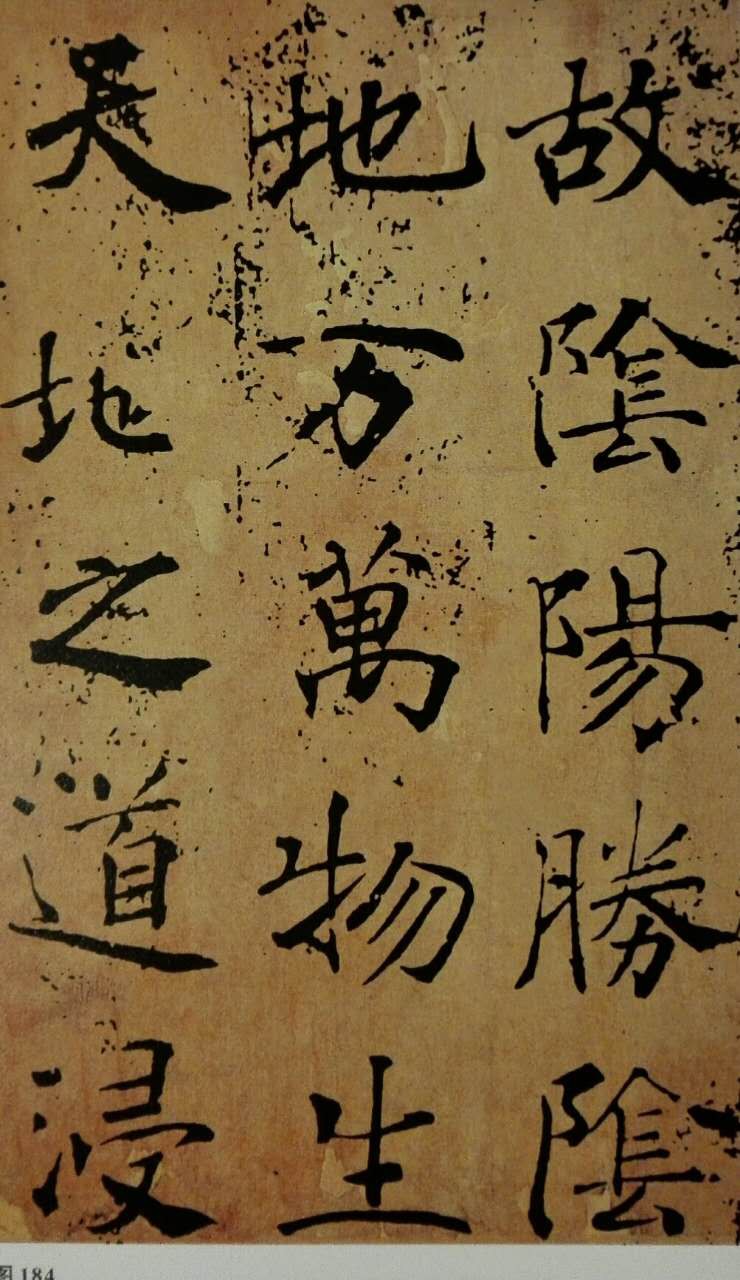 故陰陽勝陰
地万萬物生
天地之道浸
图 184